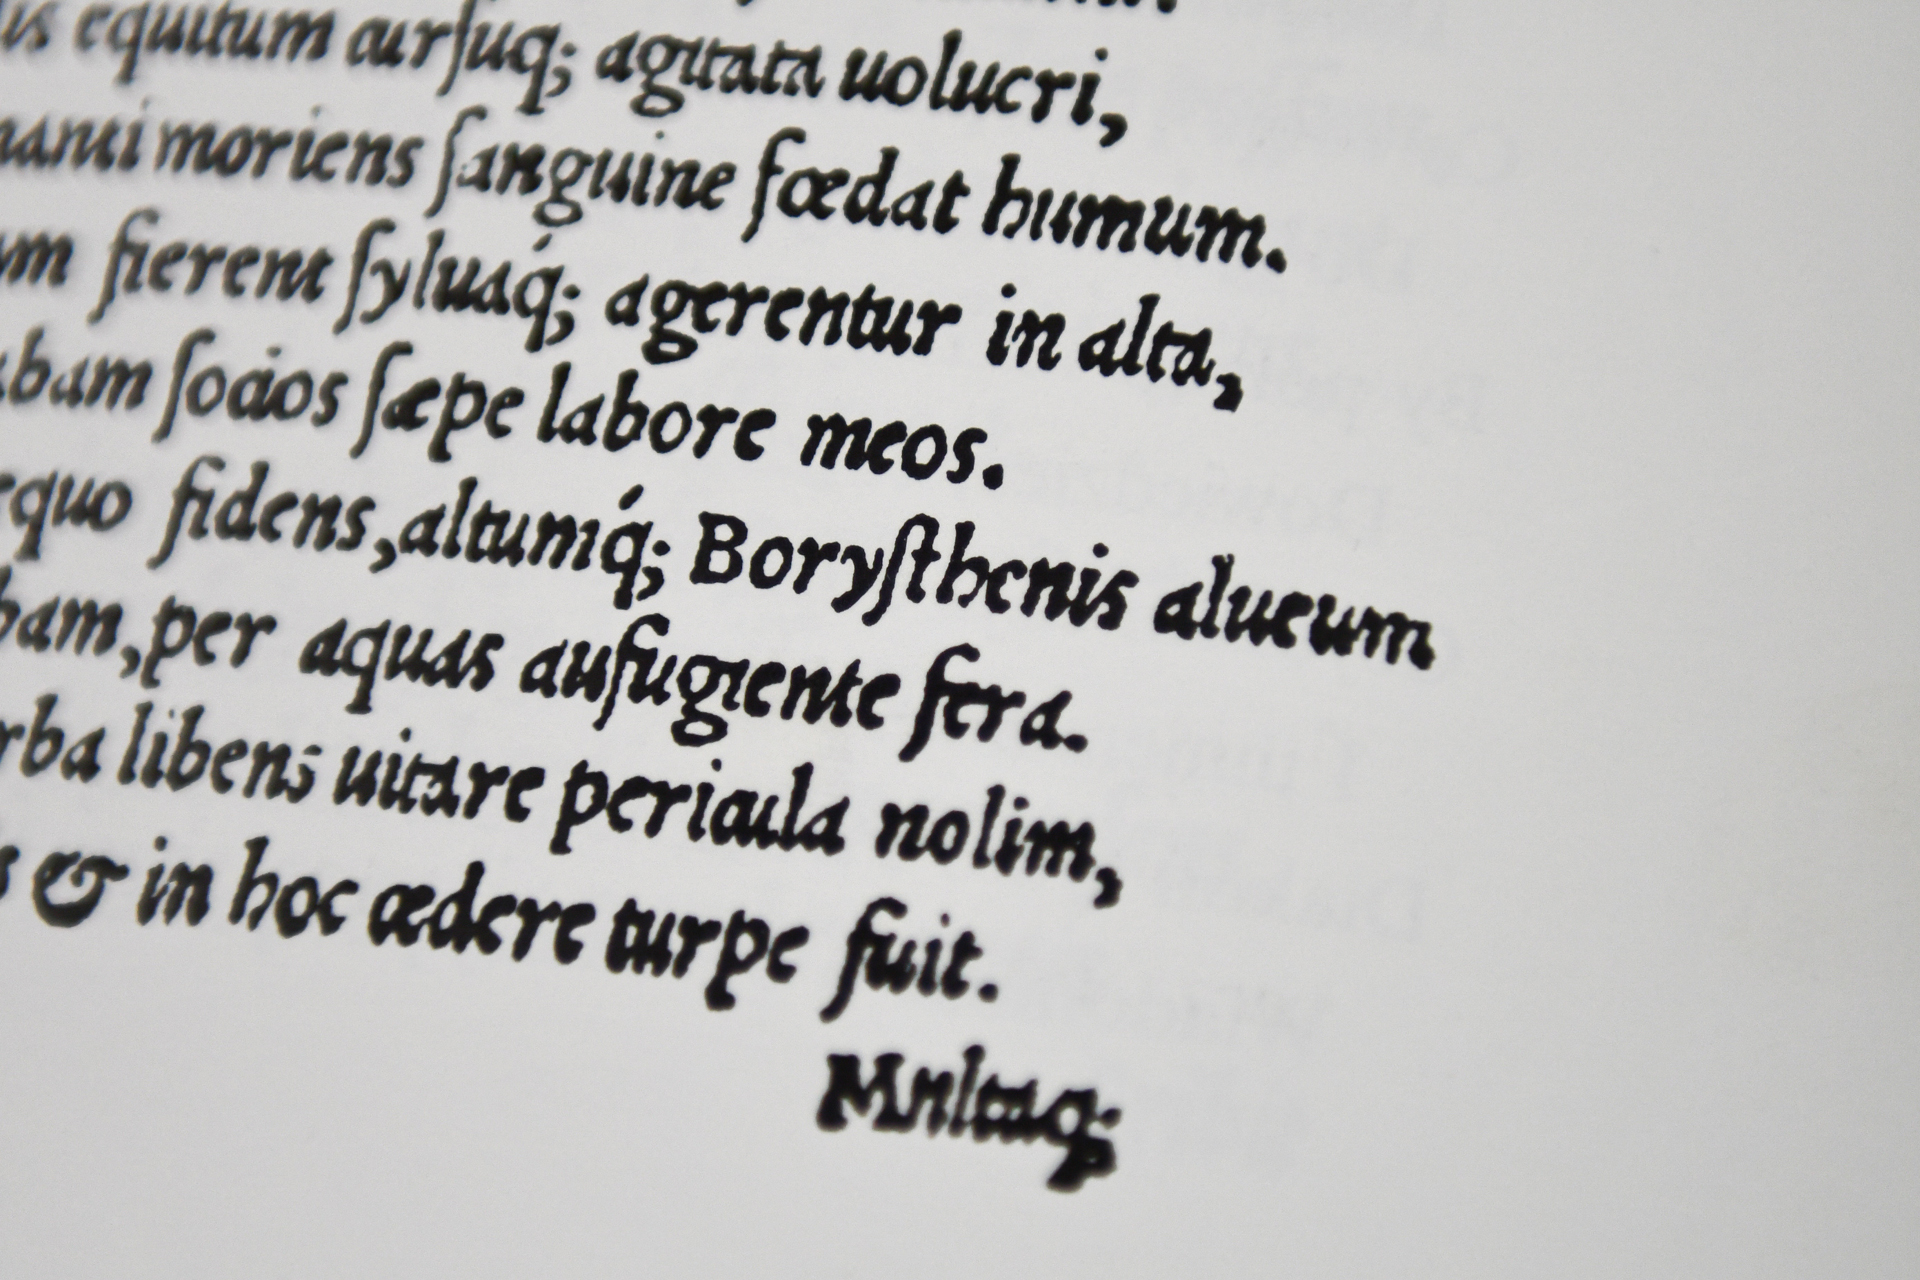 equitum curſuq; agitata uolucri,
moriens ſanguine fœdat humum.
fierent ſyluaq́; agerentur in alta,
ſocios ſæpe labore meos.
equo fidens, altumq́; Boryſthenis alueum
per aquas aufugiente fera.
libens uitare pericula nolim,
& in hoc cædere turpe fuit.
Multaq;